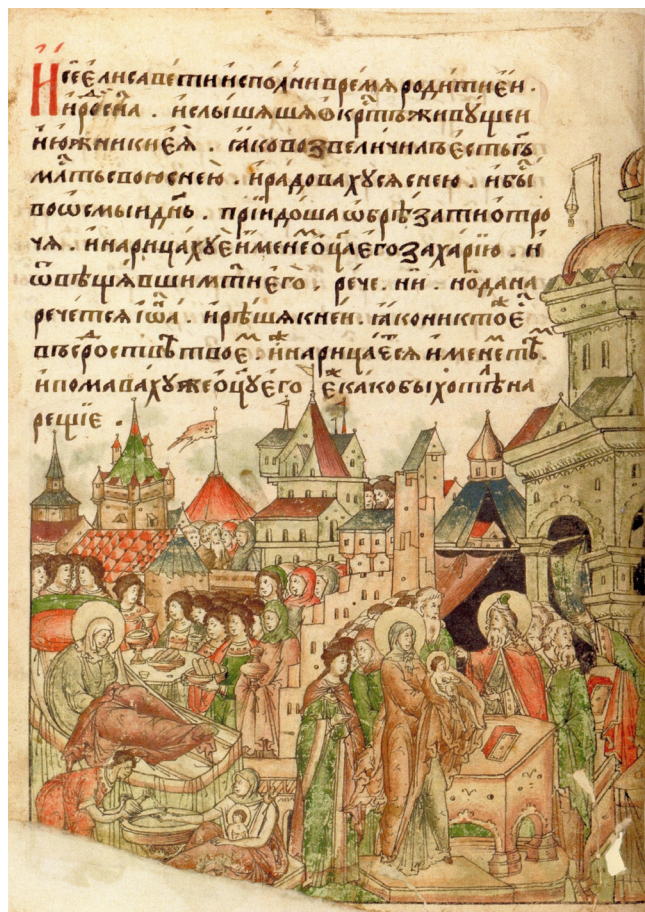 Исеелисаветиисполнивремѧродитиеи .
иродисн҃а . ислышѧшѧѡкрⷭ҇тъживущеи
июжникиеѧ . ꙗковозвеличилъестьгь҃
млⷭ҇тьсвоюснею . ирадовахусѧснею . ибыⷭ҇
воѡсмыидн҃ь . прїидошаѡбрѣзатиотро
чѧ . инарицахуеименеⷨоц҃аегозахарїю . и
ѿвѣщѧвшимт҃иего . рече . ни . нодана
речетсѧїѡ҃а . ирѣшѧкнеи . ꙗкониктоⷤе
въсроⷣствѣтвоеⷨ . иⷤнарицаетсѧименеⷨтѣⷨ .
ипомавахужеоц҃уего . еⷤкакобыхотѣлна
рещїе .